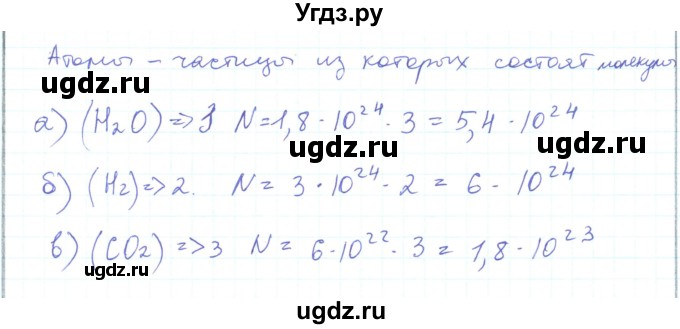 Угдз.ру
Атомы – частицы из которых состоят молекулы
ugdz.ru ugdz.ru
а) (H₂O) => 3 N = 1,8 · 10²⁴ · 3 = 5,4 · 10²⁴
ugdz.ru ugdz.ru
б) (H₂) => 2. N = 3 · 10²⁴ · 2 = 6 · 10²⁴
ugdz.ru
в) (CO₂) => 3 N = 6 · 10²² · 3 = 1,8 · 10²³
ugdz.ru ugdz.ru
ugdz.ru